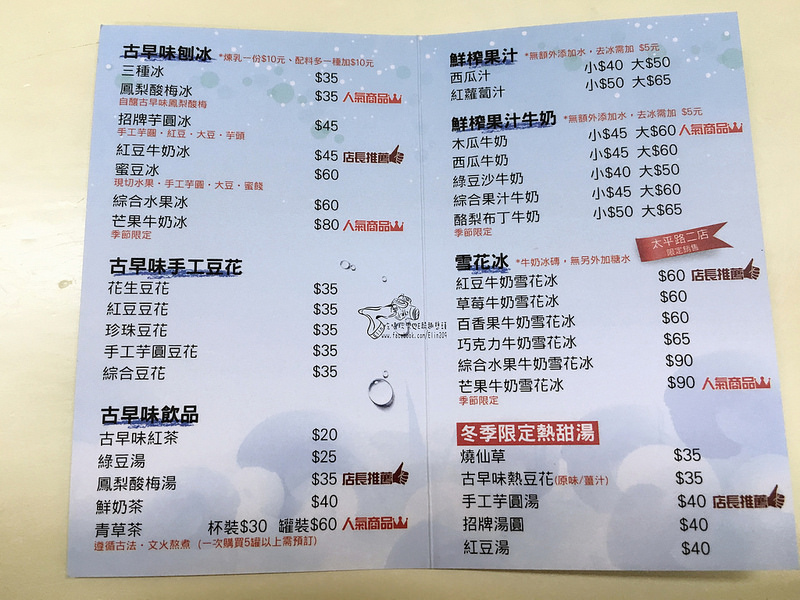 古早味刨冰 *煉乳一份$10元、配料多一種加$10元
三種冰 $35
鳳梨酸梅冰 $35 人氣商品
自釀古早味鳳梨酸梅
招牌芋圓冰 $45
手工芋圓・紅豆・大豆・芋頭
紅豆牛奶冰 $45 店長推薦
蜜豆冰 $60
現切水果・手工芋圓・大豆・蜜餞
綜合水果冰 $60
芒果牛奶冰 $80 人氣商品
季節限定
古早味手工豆花
花生豆花 $35
紅豆豆花 $35
珍珠豆花 $35
手工芋圓豆花 $35
綜合豆花 $35
古早味飲品
古早味紅茶 $20
綠豆湯 $25
鳳梨酸梅湯 $35 店長推薦
鮮奶茶 $40
青草茶 杯裝$30 罐裝$60 人氣商品
遵循古法・文火熬煮 (一次購買5罐以上需預訂)
鮮榨果汁 *無額外添加水，去冰需加 $5元
西瓜汁 小$40 大$50
紅蘿蔔汁 小$50 大$65
鮮榨果汁牛奶 *無額外添加水，去冰需加 $5元
木瓜牛奶 小$45 大$60 人氣商品
西瓜牛奶 小$45 大$60
綠豆沙牛奶 小$40 大$50
綜合果汁牛奶 小$45 大$60
酪梨布丁牛奶 小$50 大$65
季節限定
太平路二店
限定銷售
雪花冰 *牛奶冰磚，無另外加糖水
紅豆牛奶雪花冰 $60 店長推薦
草莓牛奶雪花冰 $60
百香果牛奶雪花冰 $60
巧克力牛奶雪花冰 $65
綜合水果牛奶雪花冰 $90
芒果牛奶雪花冰 $90 人氣商品
季節限定
冬季限定熱甜湯
燒仙草 $35
古早味熱豆花(原味/薑汁) $35
手工芋圓湯 $40 店長推薦
招牌湯圓 $40
紅豆湯 $40